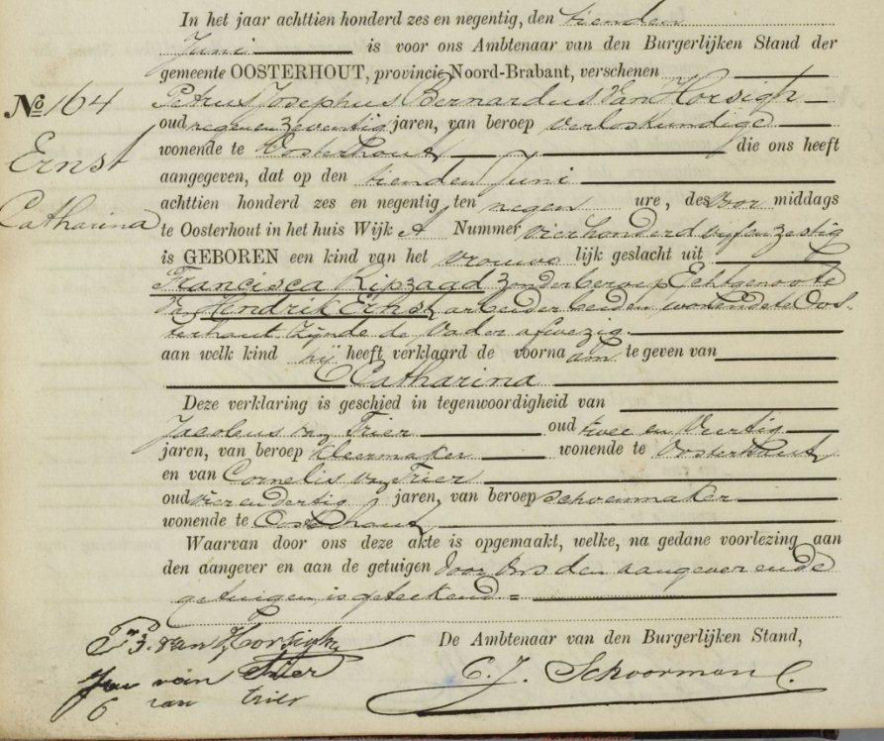 In het jaar achttien honderd zes en negentig, den tienden
Juni is voor ons Ambtenaar van den Burgerlijken Stand der
gemeente OOSTERHOUT, provincie Noord-Brabant, verschenen
No 164
Petrus Josephus Bernardus van Horsigh
oud negenenzeventig jaren, van beroep verloskundige
Ernst
wonende te Oosterhout die ons heeft
aangegeven, dat op den tienden Juni
achttien honderd zes en negentig ten negen ure, des voor middags
Catharina
te Oosterhout in het huis Wijk A Nummer vierhonderd vijfenzestig
is GEBOREN een kind van het vrouwe lijk geslacht uit
Francisca Ripzaad zonder beroep Echtgenoote
van Hendrik Ernst, arbeider beiden wonende te Oos-
terhout zijnde de Vader afwezig
aan welk kind hij heeft verklaard de voorna am te geven van
Catharina
Deze verklaring is geschied in tegenwoordigheid van
Jacobus van Trier oud twee en Veertig
jaren, van beroep kleermaker wonende te Oosterhout
en van Cornelis van Trier
oud vier en dertig jaren, van beroep schoenmaker
wonende te Oosterhout
Waarvan door ons deze akte is opgemaakt, welke, na gedane voorlezing aan
den aangever en aan de getuigen door ons den aangever en de
getuigen is geteekend =
P. B. van Horsigh
De Ambtenaar van den Burgerlijken Stand,
van Trier
C. J. Schoorman
C van trier